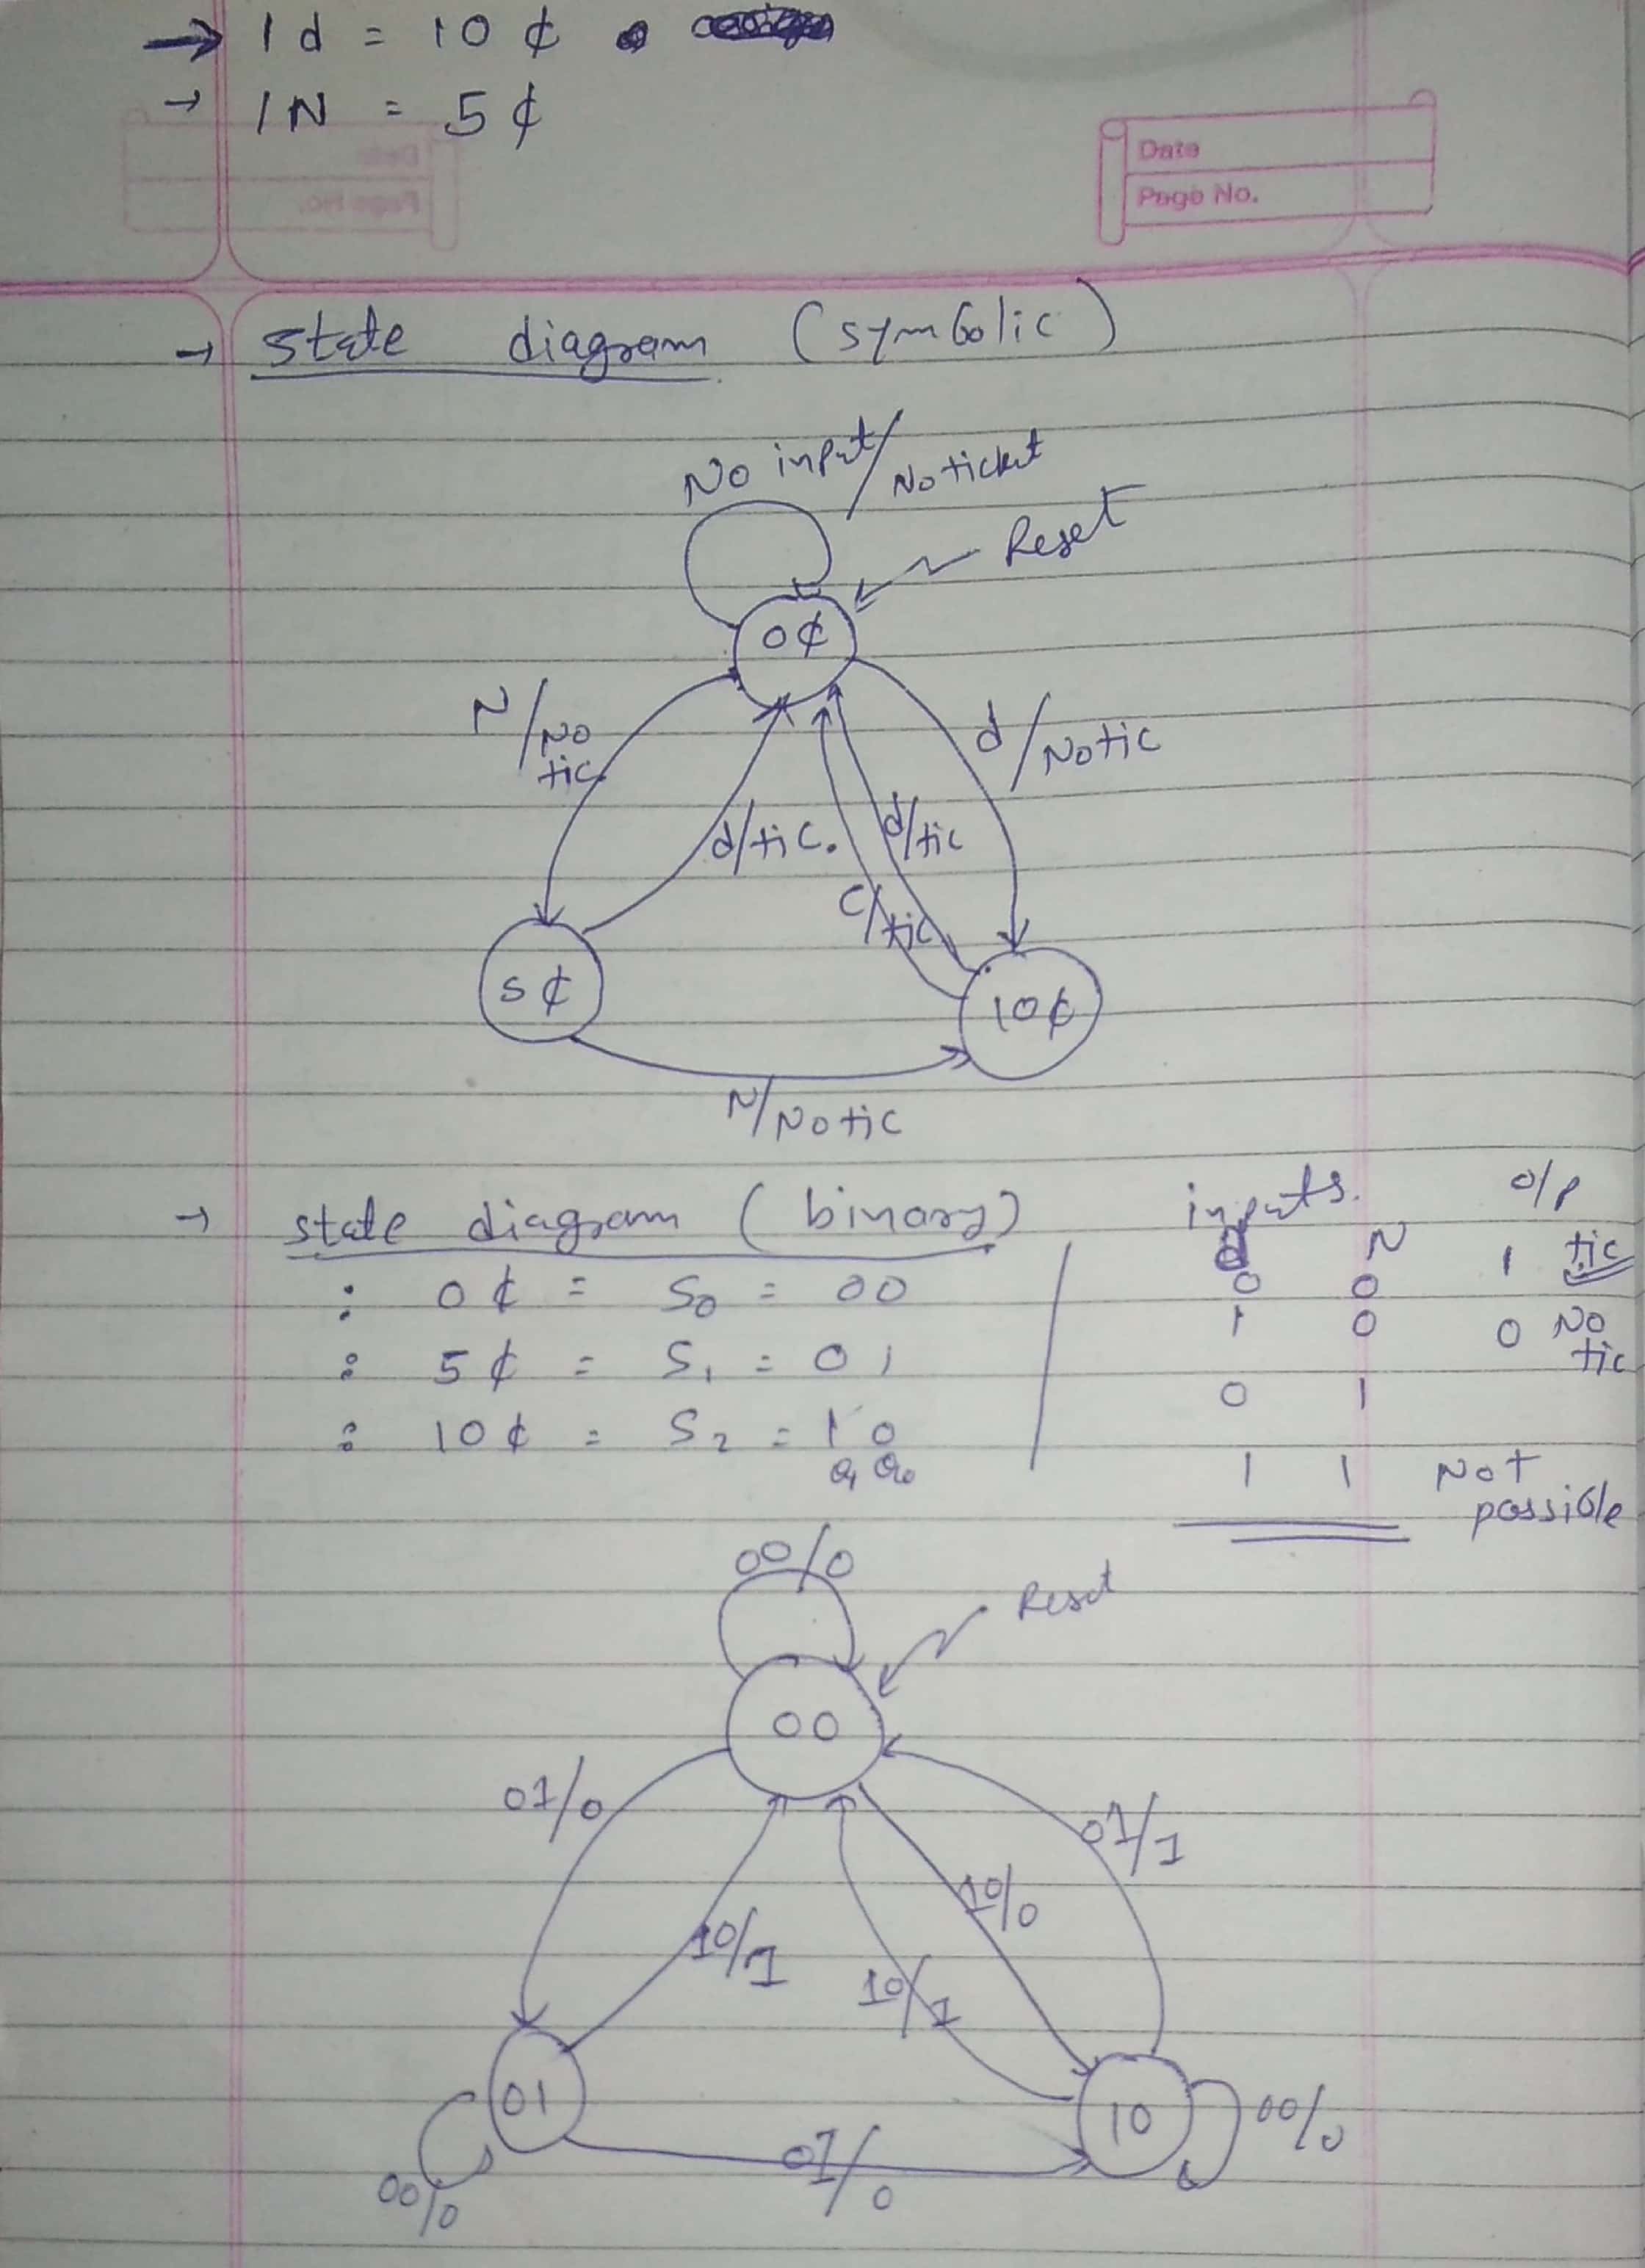 → 1d = 10 ¢
→ 1N = 5 ¢
Date
Page No.
→ state diagram (symbolic)
No input/No ticket
Reset
0¢
N/No tic
d/No tic
d/tic.
d/tic
c/tic
5¢
10¢
N/No tic
→ state diagram (binary)
: 0¢ = S0 = 00
: 5¢ = S1 = 01
: 10¢ = S2 = 10
Q1 Q0
inputs. o/p
d N 1 tic
0 0
1 0 0 No tic
0 1
1 1 Not possible
00/0
Reset
00
01/0
01/1
10/0
10/1
10/1
01
10
00/0
01/0
00/0